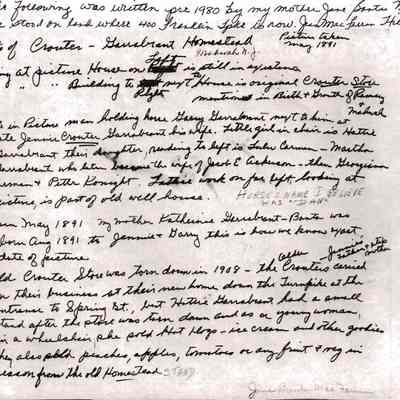 Following was written pre 1980 by my mother Jane Banta
stood on land where 400 Franklin Tpke is now. Jennie
Picture taken
May 1891
of Crouter - Garrabrant Homestead
Mahwah N.J.
at picture House on left is still in existence
" " Building to right next to House is original Crouter Store
mentioned in Birth & Growth of Ramsey
+ Mahwah
in Picture man holding horse Garry Garrabrant next to him at
Jennie Crouter Garrabrant his wife. Little girl in chair is Hattie
Garrabrant their daughter, reading to left is
Garrabrant who later became the wife of Jacob E Ackerson - then Georgiana
& Peter work on far left, looking at
picture, is part of old well house.
HORSE'S NAME I BELIEVE
WAS "DAN"
May 1891 My mother Katherine Garrabrant-Banta was
born Aug 1891 to Jennie & Garry this is how we know exact
date of picture
old Crouter Store was torn down in 1908 - the older Crouters carried
Jennie's
father & step
mother
on their business at their new home down the Turnpike at the
entrance to Spring St., but Hattie Garrabrant, had a small
stand after the store was torn down and as a young woman,
in a wheelchair, she sold Hot Dogs - ice cream and other goodies
they also sold peaches, apples, tomatoes or any fruit & veg in
season from the old Homestead STAND